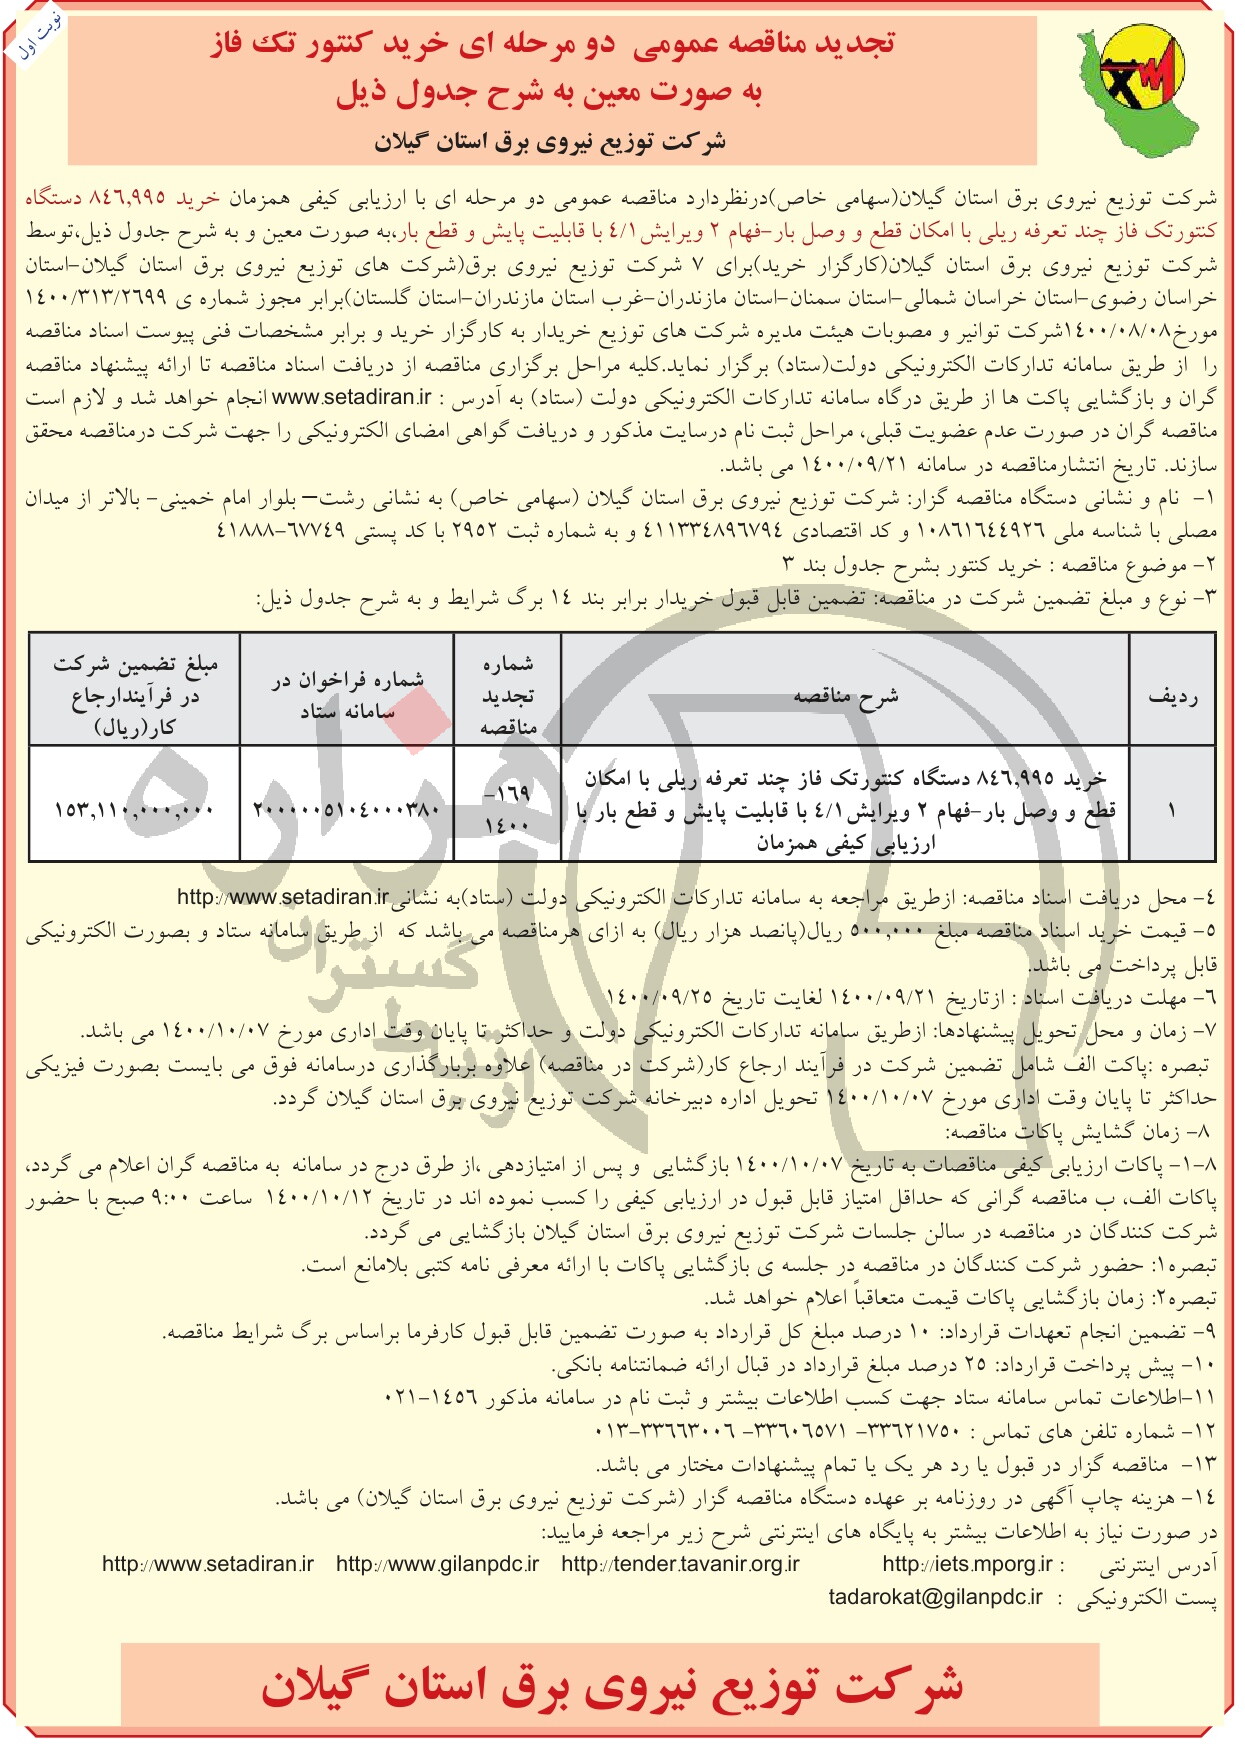 نوبت اول
تجدید مناقصه عمومی دو مرحله ای خرید کنتور تک فاز
به صورت معین به شرح جدول ذیل
شرکت توزیع نیروی برق استان گیلان
شرکت توزیع نیروی برق استان گیلان(سهامی خاص)درنظردارد مناقصه عمومی دو مرحله ای با ارزیابی کیفی همزمان خرید ۸٤٦,۹۹٥ دستگاه
کنتورتک فاز چند تعرفه ریلی با امکان قطع و وصل بار-فهام ۲ ویرایش٤/۱ با قابلیت پایش و قطع بار،به صورت معین و به شرح جدول ذیل،توسط
شرکت توزیع نیروی برق استان گیلان(کارگزار خرید)برای ۷ شرکت توزیع نیروی برق(شرکت های توزیع نیروی برق استان گیلان-استان
خراسان رضوی-استان خراسان شمالی-استان سمنان-استان مازندران-غرب استان مازندران-استان گلستان)برابر مجوز شماره ی ۱٤۰۰/۳۱۳/۲٦۹۹
مورخ۱٤۰۰/۰۸/۰۸شرکت توانیر و مصوبات هیئت مدیره شرکت های توزیع خریدار به کارگزار خرید و برابر مشخصات فنی پیوست اسناد مناقصه
را از طریق سامانه تدارکات الکترونیکی دولت(ستاد) برگزار نماید.کلیه مراحل برگزاری مناقصه از دریافت اسناد مناقصه تا ارائه پیشنهاد مناقصه
گران و بازگشایی پاکت ها از طریق درگاه سامانه تدارکات الکترونیکی دولت (ستاد) به آدرس : www.setadiran.ir انجام خواهد شد و لازم است
مناقصه گران در صورت عدم عضویت قبلی، مراحل ثبت نام درسایت مذکور و دریافت گواهی امضای الکترونیکی را جهت شرکت درمناقصه محقق
سازند. تاریخ انتشارمناقصه در سامانه ۱٤۰۰/۰۹/۲۱ می باشد.
۱- نام و نشانی دستگاه مناقصه گزار: شرکت توزیع نیروی برق استان گیلان (سهامی خاص) به نشانی رشت– بلوار امام خمینی- بالاتر از میدان
مصلی با شناسه ملی ۱۰۸٦۱٦٤٤۹۲٦ و کد اقتصادی ٤۱۱۳۳٤۸۹٦۷۹٤ و به شماره ثبت ۲۹٥۲ با کد پستی ٦۷۷٤۹-٤۱۸۸۸
۲- موضوع مناقصه : خرید کنتور بشرح جدول بند ۳
۳- نوع و مبلغ تضمین شرکت در مناقصه: تضمین قابل قبول خریدار برابر بند ۱٤ برگ شرایط و به شرح جدول ذیل:
ردیف
شرح مناقصه
شماره
تجدید
مناقصه
شماره فراخوان در
سامانه ستاد
مبلغ تضمین شرکت
در فرآیندارجاع
کار(ریال)
۱
خرید ۸٤٦,۹۹٥ دستگاه کنتورتک فاز چند تعرفه ریلی با امکان
قطع و وصل بار-فهام ۲ ویرایش٤/۱ با قابلیت پایش و قطع بار با
ارزیابی کیفی همزمان
۱٦۹-
۱٤۰۰
۲۰۰۰۰۰٥۱۰٤۰۰۰۳۸۰
۱٥۳,۱۱۰,۰۰۰,۰۰۰
٤- محل دریافت اسناد مناقصه: ازطریق مراجعه به سامانه تدارکات الکترونیکی دولت (ستاد)به نشانیhttp://www.setadiran.ir
٥- قیمت خرید اسناد مناقصه مبلغ ٥۰۰,۰۰۰ ریال(پانصد هزار ریال) به ازای هرمناقصه می باشد که از طریق سامانه ستاد و بصورت الکترونیکی
قابل پرداخت می باشد.
٦- مهلت دریافت اسناد : ازتاریخ ۱٤۰۰/۰۹/۲۱ لغایت تاریخ ۱٤۰۰/۰۹/۲٥
۷- زمان و محل تحویل پیشنهادها: ازطریق سامانه تدارکات الکترونیکی دولت و حداکثر تا پایان وقت اداری مورخ ۱٤۰۰/۱۰/۰۷ می باشد.
تبصره :پاکت الف شامل تضمین شرکت در فرآیند ارجاع کار(شرکت در مناقصه) علاوه بربارگذاری درسامانه فوق می بایست بصورت فیزیکی
حداکثر تا پایان وقت اداری مورخ ۱٤۰۰/۱۰/۰۷ تحویل اداره دبیرخانه شرکت توزیع نیروی برق استان گیلان گردد.
۸- زمان گشایش پاکات مناقصه:
۸-۱- پاکات ارزیابی کیفی مناقصات به تاریخ ۱٤۰۰/۱۰/۰۷ بازگشایی و پس از امتیازدهی ،از طرق درج در سامانه به مناقصه گران اعلام می گردد،
پاکات الف، ب مناقصه گرانی که حداقل امتیاز قابل قبول در ارزیابی کیفی را کسب نموده اند در تاریخ ۱٤۰۰/۱۰/۱۲ ساعت ۹:۰۰ صبح با حضور
شرکت کنندگان در مناقصه در سالن جلسات شرکت توزیع نیروی برق استان گیلان بازگشایی می گردد.
تبصره۱: حضور شرکت کنندگان در مناقصه در جلسه ی بازگشایی پاکات با ارائه معرفی نامه کتبی بلامانع است.
تبصره۲: زمان بازگشایی پاکات قیمت متعاقباً اعلام خواهد شد.
۹- تضمین انجام تعهدات قرارداد: ۱۰ درصد مبلغ کل قرارداد به صورت تضمین قابل قبول کارفرما براساس برگ شرایط مناقصه.
۱۰- پیش پرداخت قرارداد: ۲٥ درصد مبلغ قرارداد در قبال ارائه ضمانتنامه بانکی.
۱۱-اطلاعات تماس سامانه ستاد جهت کسب اطلاعات بیشتر و ثبت نام در سامانه مذکور ۱٤٥٦-۰۲۱
۱۲- شماره تلفن های تماس : ۳۳٦۲۱۷٥۰- ۳۳٦۰٦٥۷۱- ۳۳٦٦۳۰۰٦-۰۱۳
۱۳- مناقصه گزار در قبول یا رد هر یک یا تمام پیشنهادات مختار می باشد.
۱٤- هزینه چاپ آگهی در روزنامه بر عهده دستگاه مناقصه گزار (شرکت توزیع نیروی برق استان گیلان) می باشد.
در صورت نیاز به اطلاعات بیشتر به پایگاه های اینترنتی شرح زیر مراجعه فرمایید:
آدرس اینترنتی : http://iets.mporg.ir http://tender.tavanir.org.ir http://www.gilanpdc.ir http://www.setadiran.ir
پست الکترونیکی : tadarokat@gilanpdc.ir
شرکت توزیع نیروی برق استان گیلان
هزاره
گستران
ارتباط